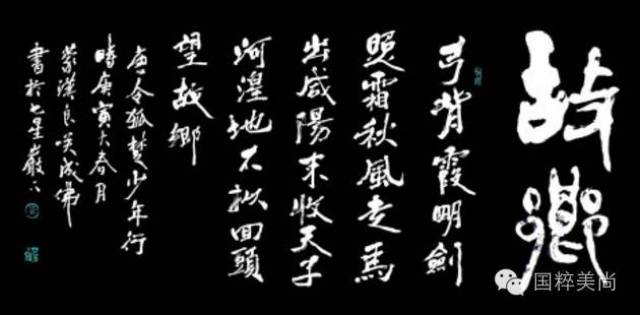 故鄉
弓背霞明劍
照霜秋風走馬
出咸陽未收天子
河湟地不拟回頭
望故鄉
唐令狐楚少年行
時庚寅大春月
蒙漢良咲成佛
書於七星巖下
国粹美尚